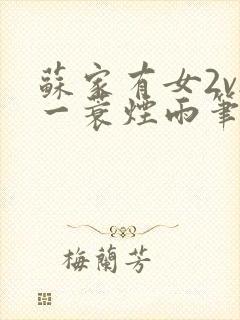 蘇家有女2v
一蓑煙雨筆
梅蘭芳